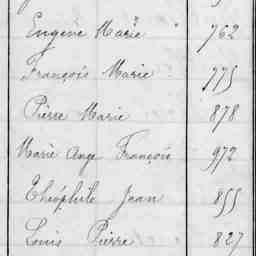 Eugène Marie " 762
François Marie 775
Pierre Marie 878
Marie Ange François 972
Théophile Jean 855
Louis Pierre 827